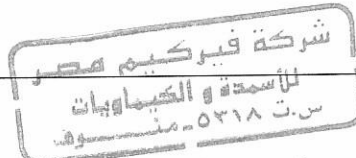 شركة فيركيم مصر
للأسمدة و الكيماويات
س.ت ٥٣١٨ - منـــوف